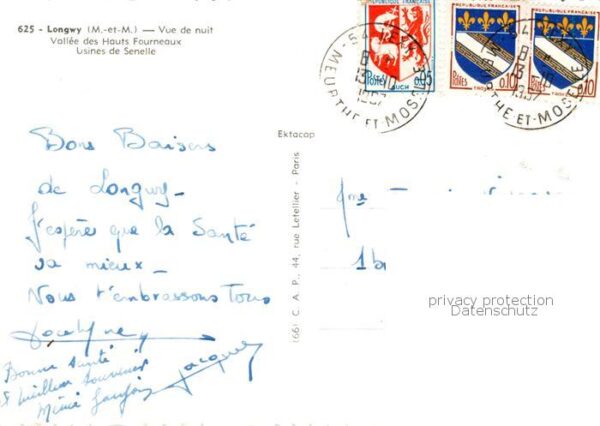 625 - Longwy (M.-et-M.) — Vue de nuit
Vallée des Hauts Fourneaux
Usines de Senelle
RÉPUBLIQUE FRANÇAISE
Postes 0,05
AUCH
RÉPUBLIQUE FRANÇAISE
Postes 0,10
RÉPUBLIQUE FRANÇAISE
Postes 0,10
MEURTHE-ET-MOSELLE
13-10
1967
MEURTHE-ET-MOSELLE
13-10
1967
Ektacap
C. A. P., 44, rue Letellier - Paris
Bons Baisers
de Longwy -
J'espère que la Santé
va mieux -
Nous t'embrassons Tous
Jocelyne
Jacques
Bonne Santé
meilleur souvenir
Mimi
Mme
privacy protection
Datenschutz